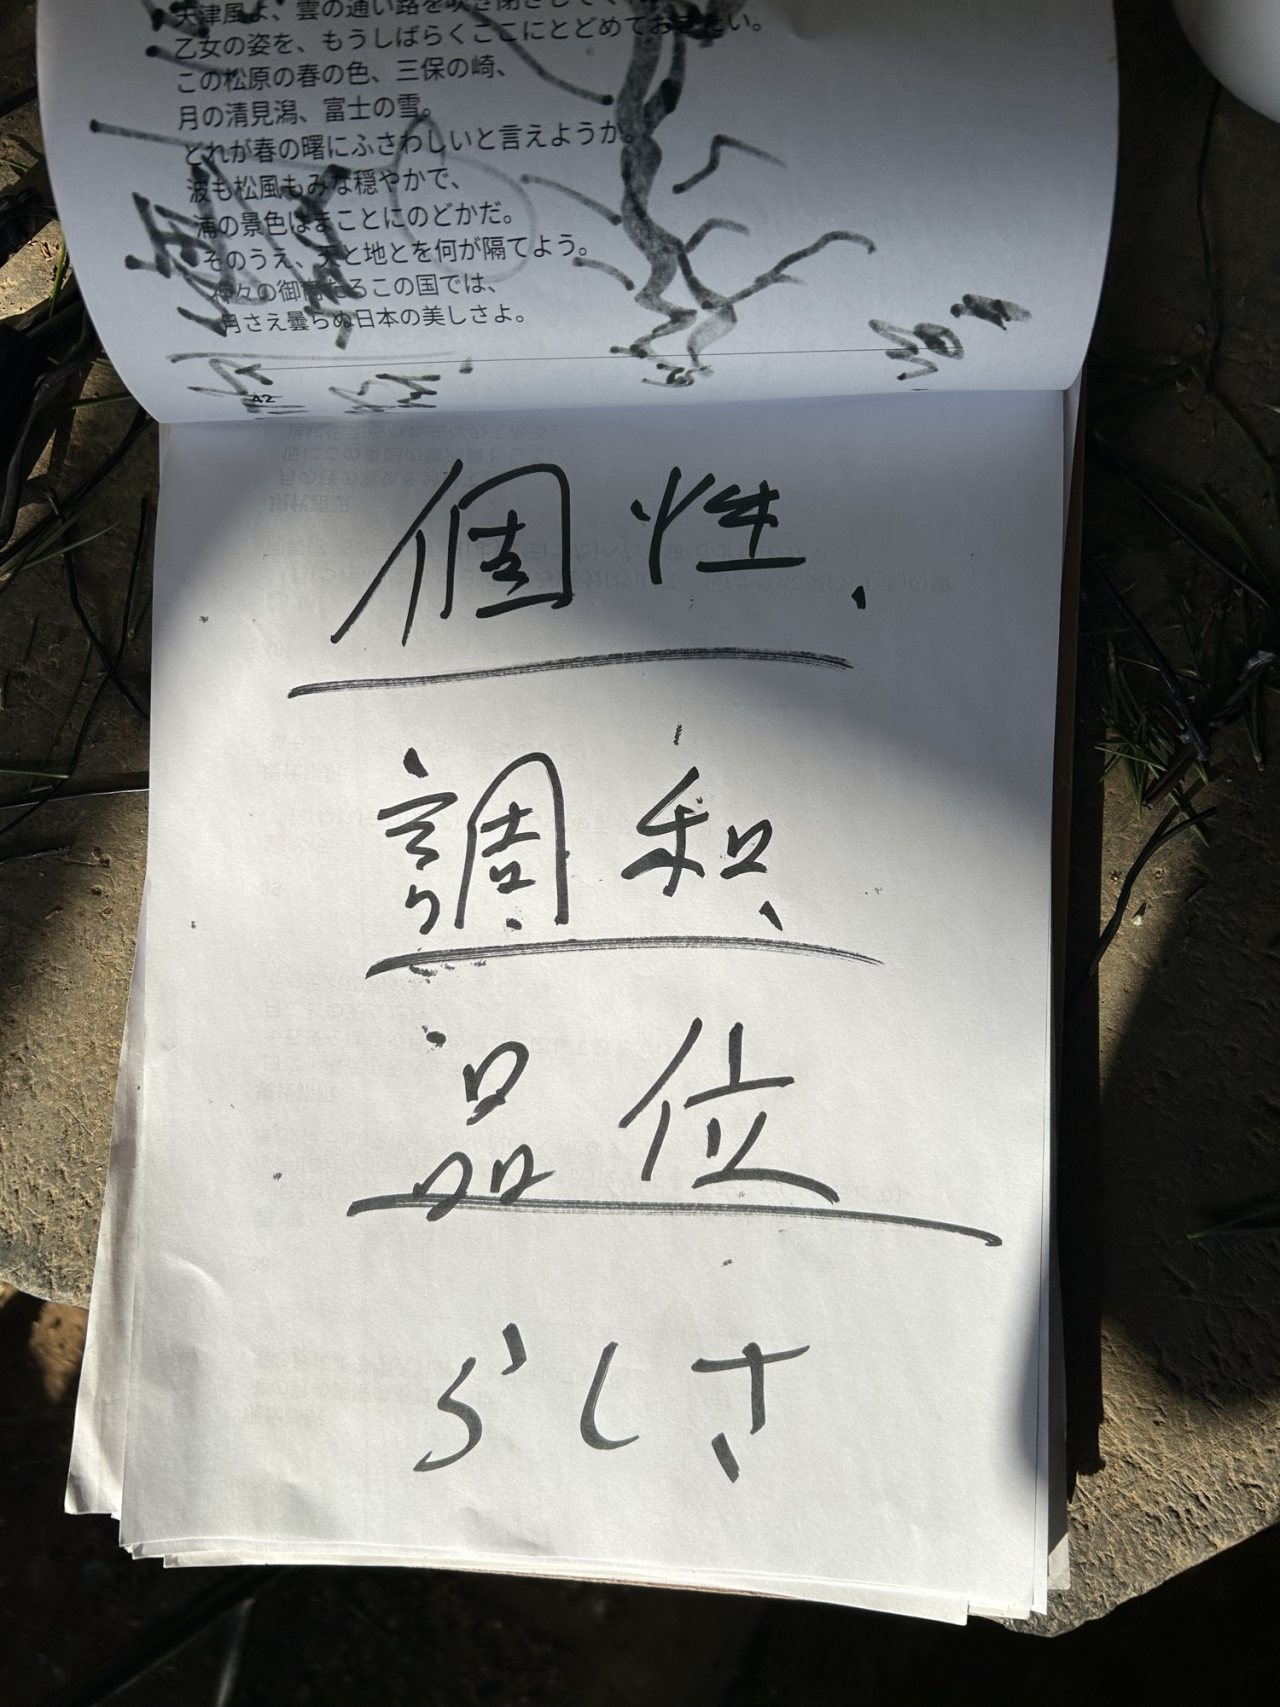 天津風よ、雲の通い路を吹き閉ざしてくれ
乙女の姿を、もうしばらくここにとどめておきたい。
この松原の春の色、三保の崎、
月の清見潟、富士の雪。
どれが春の曙にふさわしいと言えようか。
波も松風もみな穏やかで、
浦の景色はまことにのどかだ。
そのうえ、天と地とを何が隔てよう。
神々の御裔たるこの国では、
月さえ曇らぬ日本の美しさよ。
42
個性、
調和、
品位
らしさ